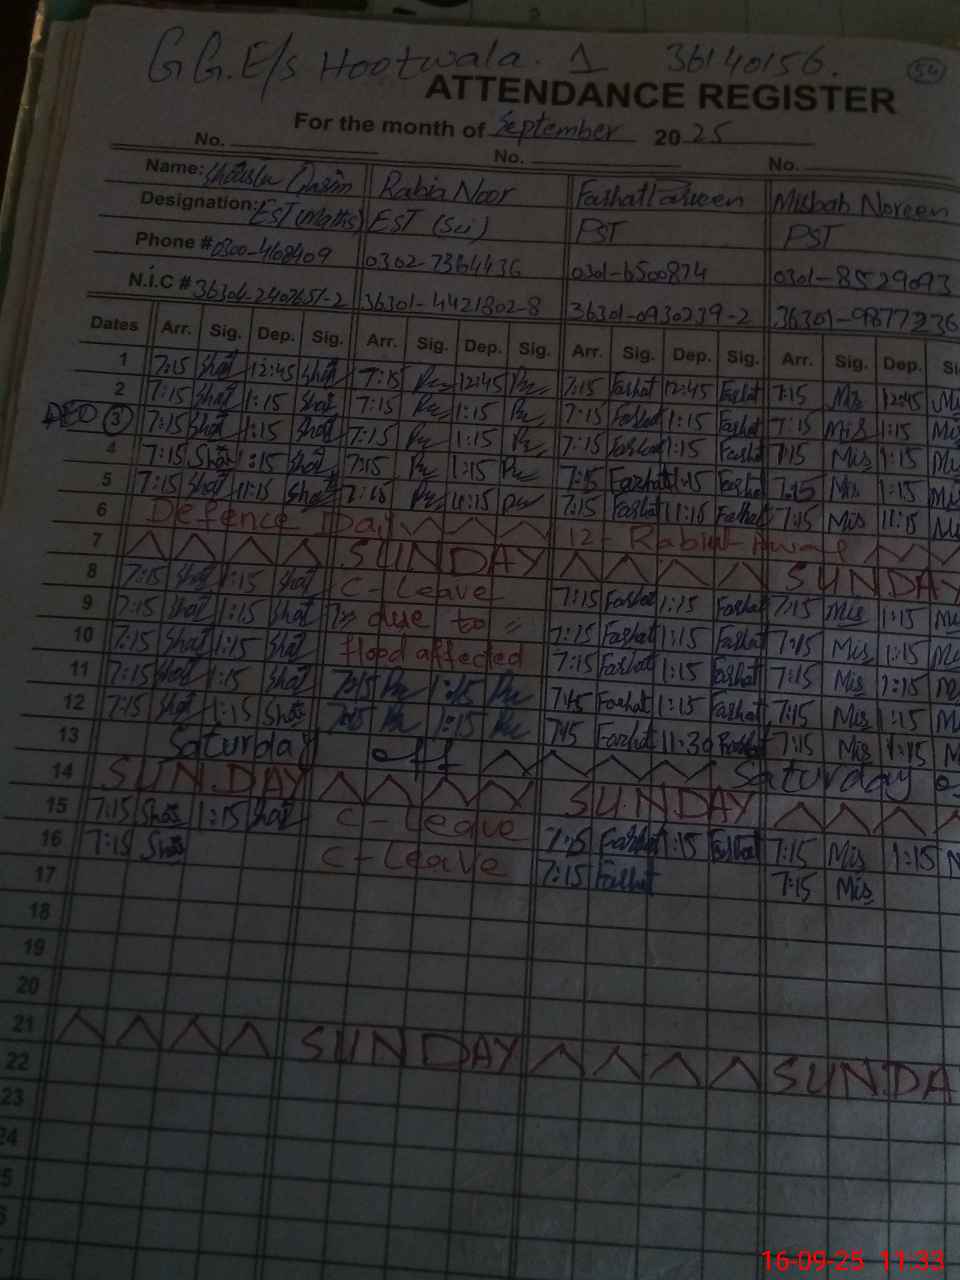 G G. E/s Hootwala. 1 36140156. 54
ATTENDANCE REGISTER
For the month of September 20 25
No. No. No.
Name: Rabia Noor Misbah Noreen
Designation: EST (maths) EST (Sci) PST PST
Phone # 0300-4168409 0302-7364436 0301-6500874 0301-8529093
N.i.C # 36304-2407651-2 36301-4421802-8 36301-0930239-2 36301-9877236
Dates Arr. Sig. Dep. Sig. Arr. Sig. Dep. Sig. Arr. Sig. Dep. Sig. Arr. Sig. Dep. Si
1 7:15 Shat 12:45 Shat 7:15 12:45 7:15 Farhat 12:45 Farhat 7:15 Mis 12:45
2 7:15 Shat 1:15 Shat 7:15 1:15 7:15 Farhat 1:15 Farhat 7:15 Mis 1:15
3 7:15 Shat 1:15 Shat 7:15 1:15 7:15 Farhat 1:15 Farhat 7:15 Mis 1:15
4 7:15 Shat 1:15 Shat 7:15 1:15 7:15 Farhat 1:15 Farhat 7:15 Mis 1:15
5 7:15 Shat 11:15 Shat 7:15 11:15 7:15 Farhat 11:15 Farhat 7:15 Mis 11:15
6 Defence Day 12- Rabi
7 SUNDAY SUNDAY
8 7:15 Shat 1:15 Shat C-Leave 7:15 Farhat 1:15 Farhat 7:15 Mis 1:15
9 7:15 Shat 1:15 Shat due to 7:15 Farhat 1:15 Farhat 7:15 Mis 1:15
10 7:15 Shat 1:15 Shat flood affected 7:15 Farhat 1:15 Farhat 7:15 Mis 1:15
11 7:15 Shat 1:15 Shat 7:15 1:15 7:45 Farhat 1:15 Farhat 7:15 Mis 1:15
12 7:15 Shat 1:15 Shat 7:15 1:15 7:45 Farhat 11:30 Farhat 7:15 Mis 1:15
13 Saturday off Saturday
14 SUNDAY SUNDAY
15 7:15 Shat 1:15 Shat C-Leave 7:15 Farhat 1:15 Farhat 7:15 Mis 1:15
16 7:15 Shat C-Leave 7:15 Farhat 7:15 Mis
17
18
19
20
21 SUNDAY SUNDA
22
23
24
5
16-09-25 11:33